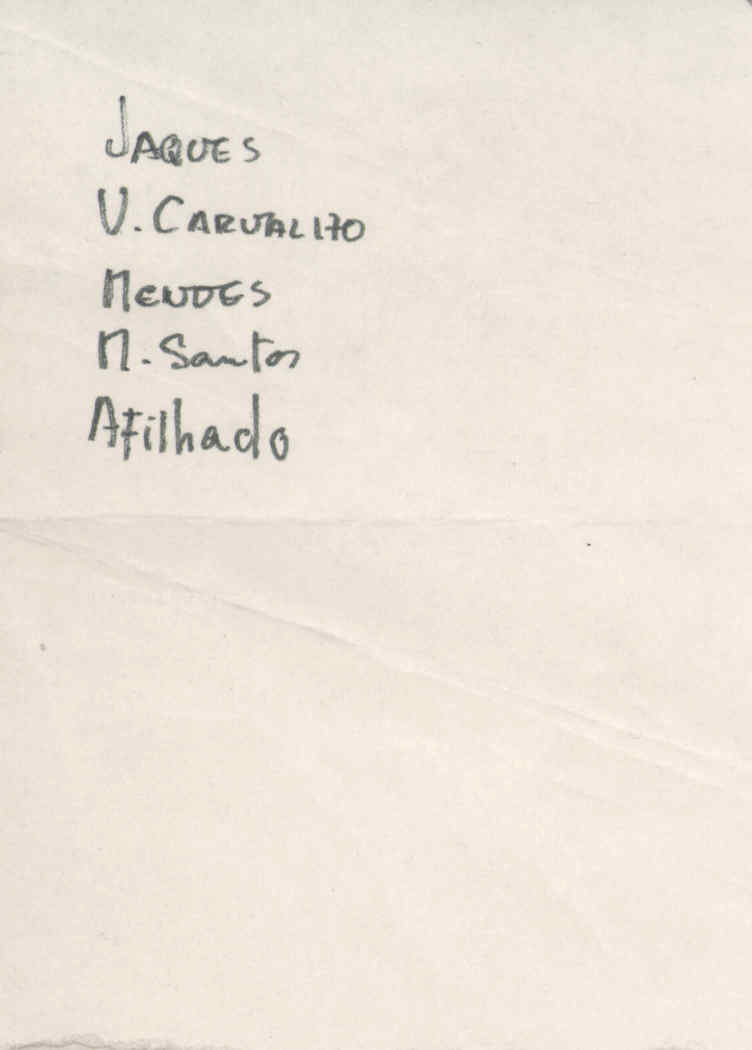 JAQUES
V. CARVALHO
MENDES
M. Santos
Afilhado